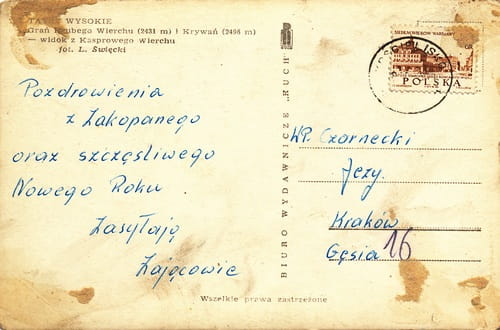 TATRY WYSOKIE
Grań Hrubego Wierchu (2431 m) i Krywań (2496 m)
— widok z Kasprowego Wierchu
fot. L. Święcki
Pozdrowienia
z Zakopanego
oraz szczęśliwego
Nowego Roku
Zasyłają
Zającowie
BIURO WYDAWNICZE „RUCH"
POLSKA
WP. Czarnecki
Jerzy.
Kraków
Gęsia 16
Wszelkie prawa zastrzeżone